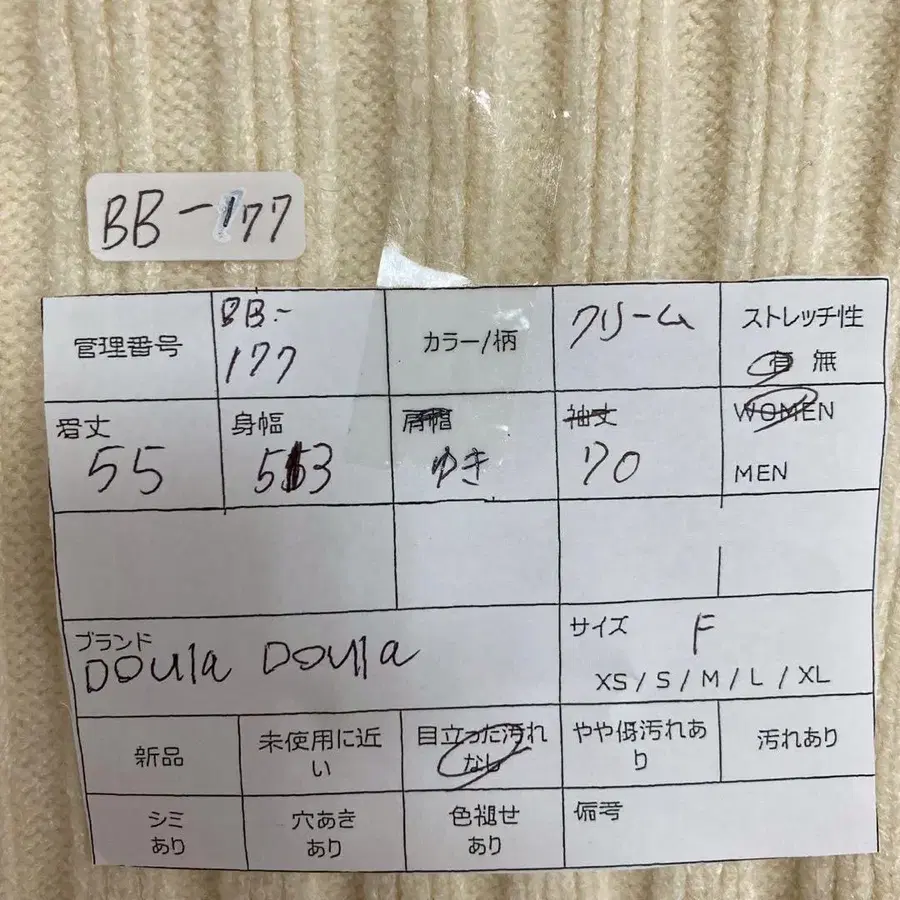 BB-177
管理番号
BB-
177
カラー/柄
クリーム
ストレッチ性
有 無
着丈
55
身幅
53
肩幅
ゆき
袖丈
70
WOMEN
MEN
ブランド
Doula Doula
サイズ F
XS / S / M / L / XL
新品
未使用に近
い
目立った汚れ
なし
やや傷汚れあ
り
汚れあり
シミ
あり
穴あき
あり
色褪せ
あり
備考